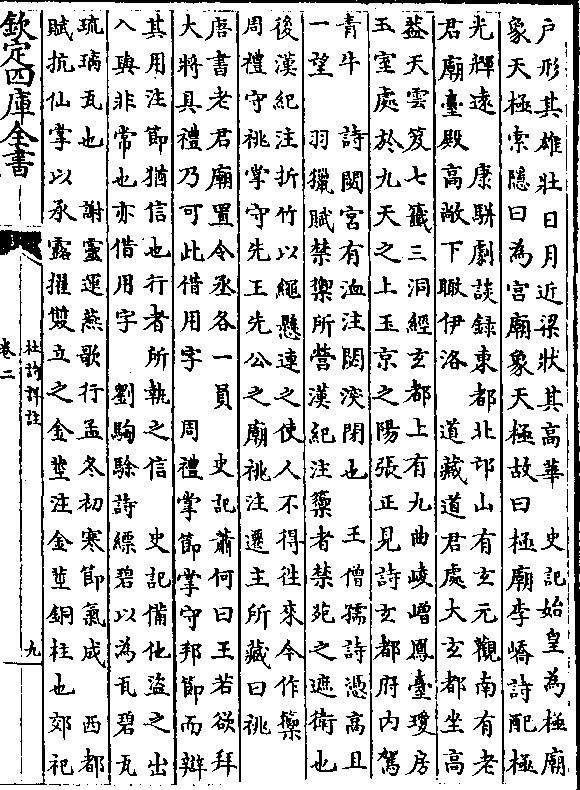 户形其雄壯日月近梁狀其高華　史記始皇為極廟
象天極索隱曰為宮廟象天極故曰極廟李嶠詩配極
光輝遠　康駢劇談録東都北邙山有玄元觀南有老
君廟臺殿高敞下瞰伊洛　道藏道君處大玄都坐高
葢天雲笈七籤三洞經玄都上有九曲崚嶒鳳臺瓊房
玉室處於九天之上玉京之陽張正見詩玄都府内駕
青牛　詩閟宮有洫注閟深閉也　王僧孺詩憑高且
一望　羽獵賦禁禦所營漢紀注籞者禁苑之遮衛也
後漢紀注折竹以繩懸連之使人不得徃來今作籞
周禮守祧掌守先王先公之廟祧注遷主所藏曰祧
唐書老君廟置令丞各一員　史記蕭何曰王若欲拜
大將具禮乃可此借用字　周禮掌節掌守邦節而辯
其用注節猶信也行者所執之信　史記備他盜之出
入與非常也亦借用字　劉騊駼詩縹碧以為瓦碧瓦
琉璃瓦也　謝靈運燕歌行孟冬初寒節氣成　西都
賦抗仙掌以承露擢雙立之金莖注金莖銅柱也郊祀
欽定四庫全書
杜詩詳註
卷二
九